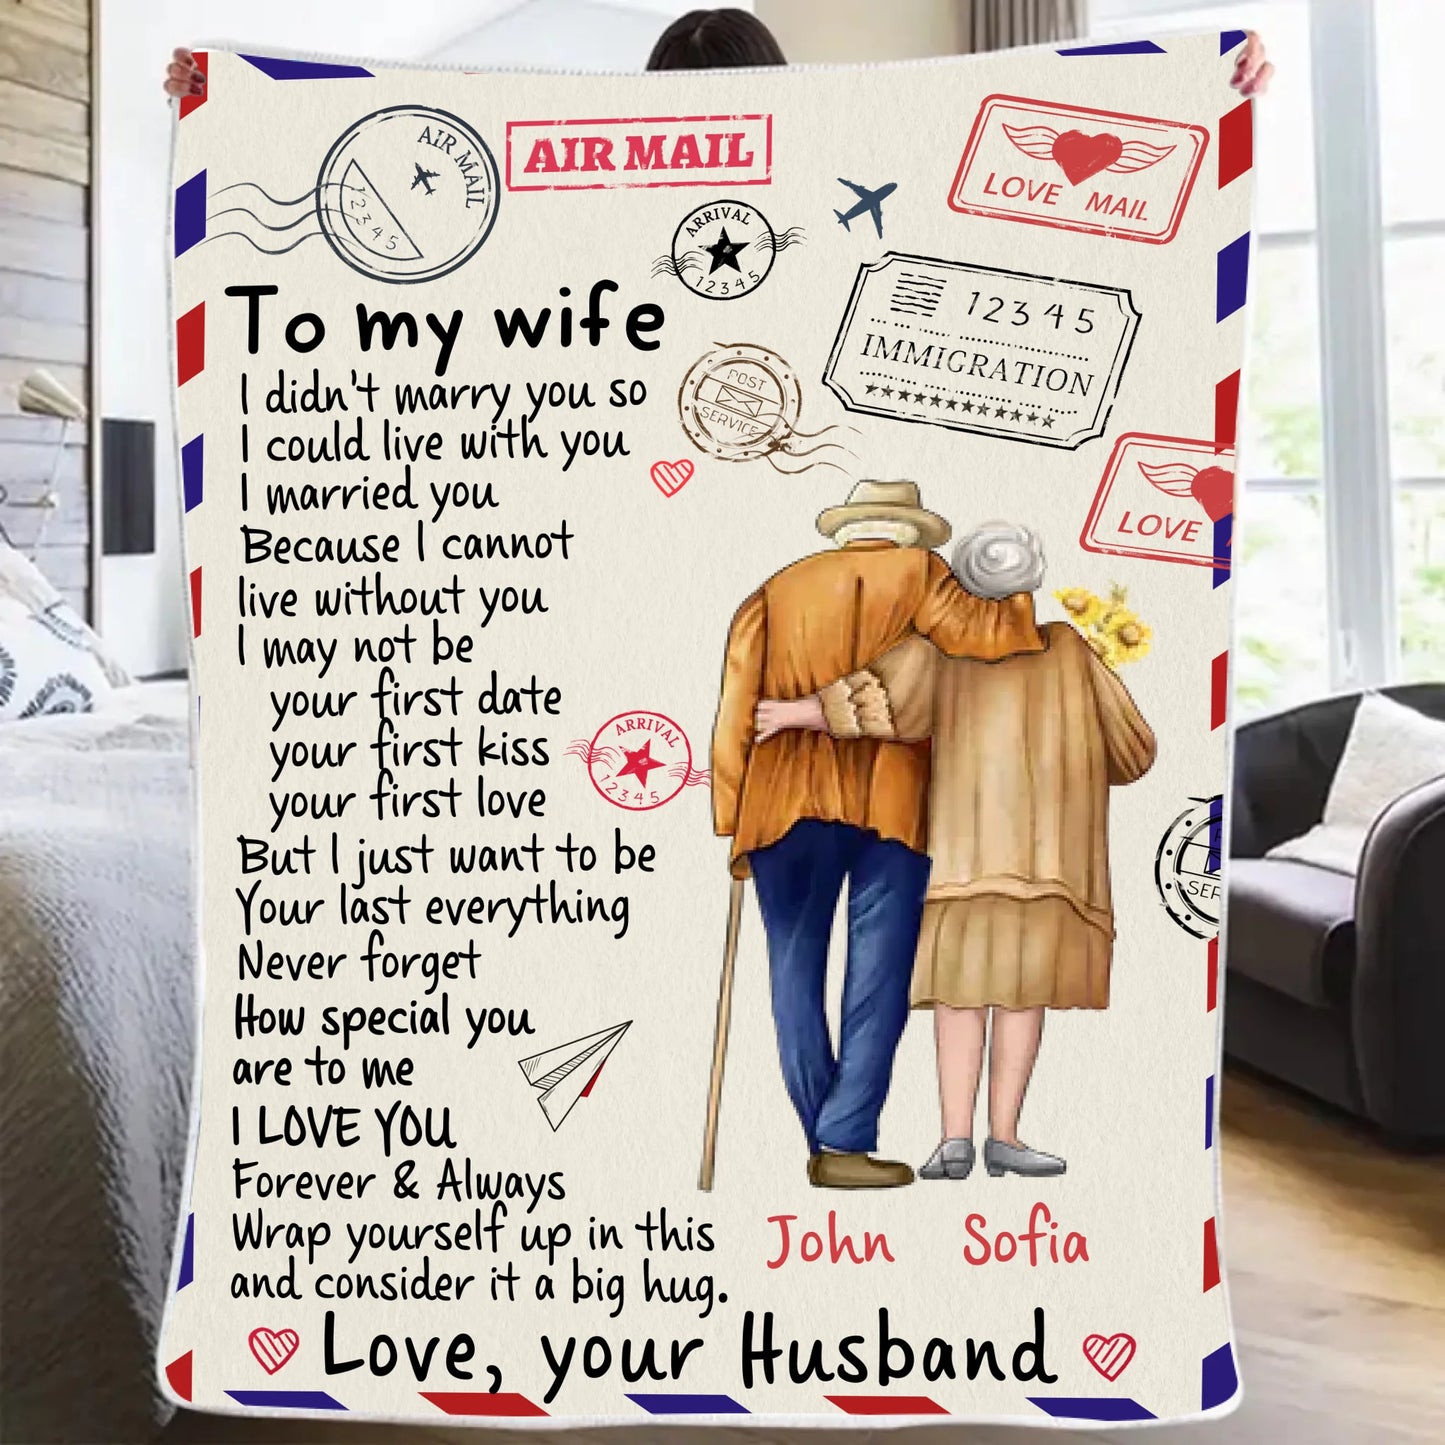 AIR MAIL
12345
AIR MAIL
LOVE MAIL
ARRIVAL
12345
12345
IMMIGRATION
POST
SERVICE
LOVE
To my wife
I didn't marry you so
I could live with you
I married you
Because I cannot
live without you
I may not be
your first date
your first kiss
your first love
ARRIVAL
12345
But I just want to be
Your last everything
Never forget
How special you
are to me
I LOVE YOU
Forever & Always
Wrap yourself up in this
and consider it a big hug.
SER
John Sofia
Love, your Husband